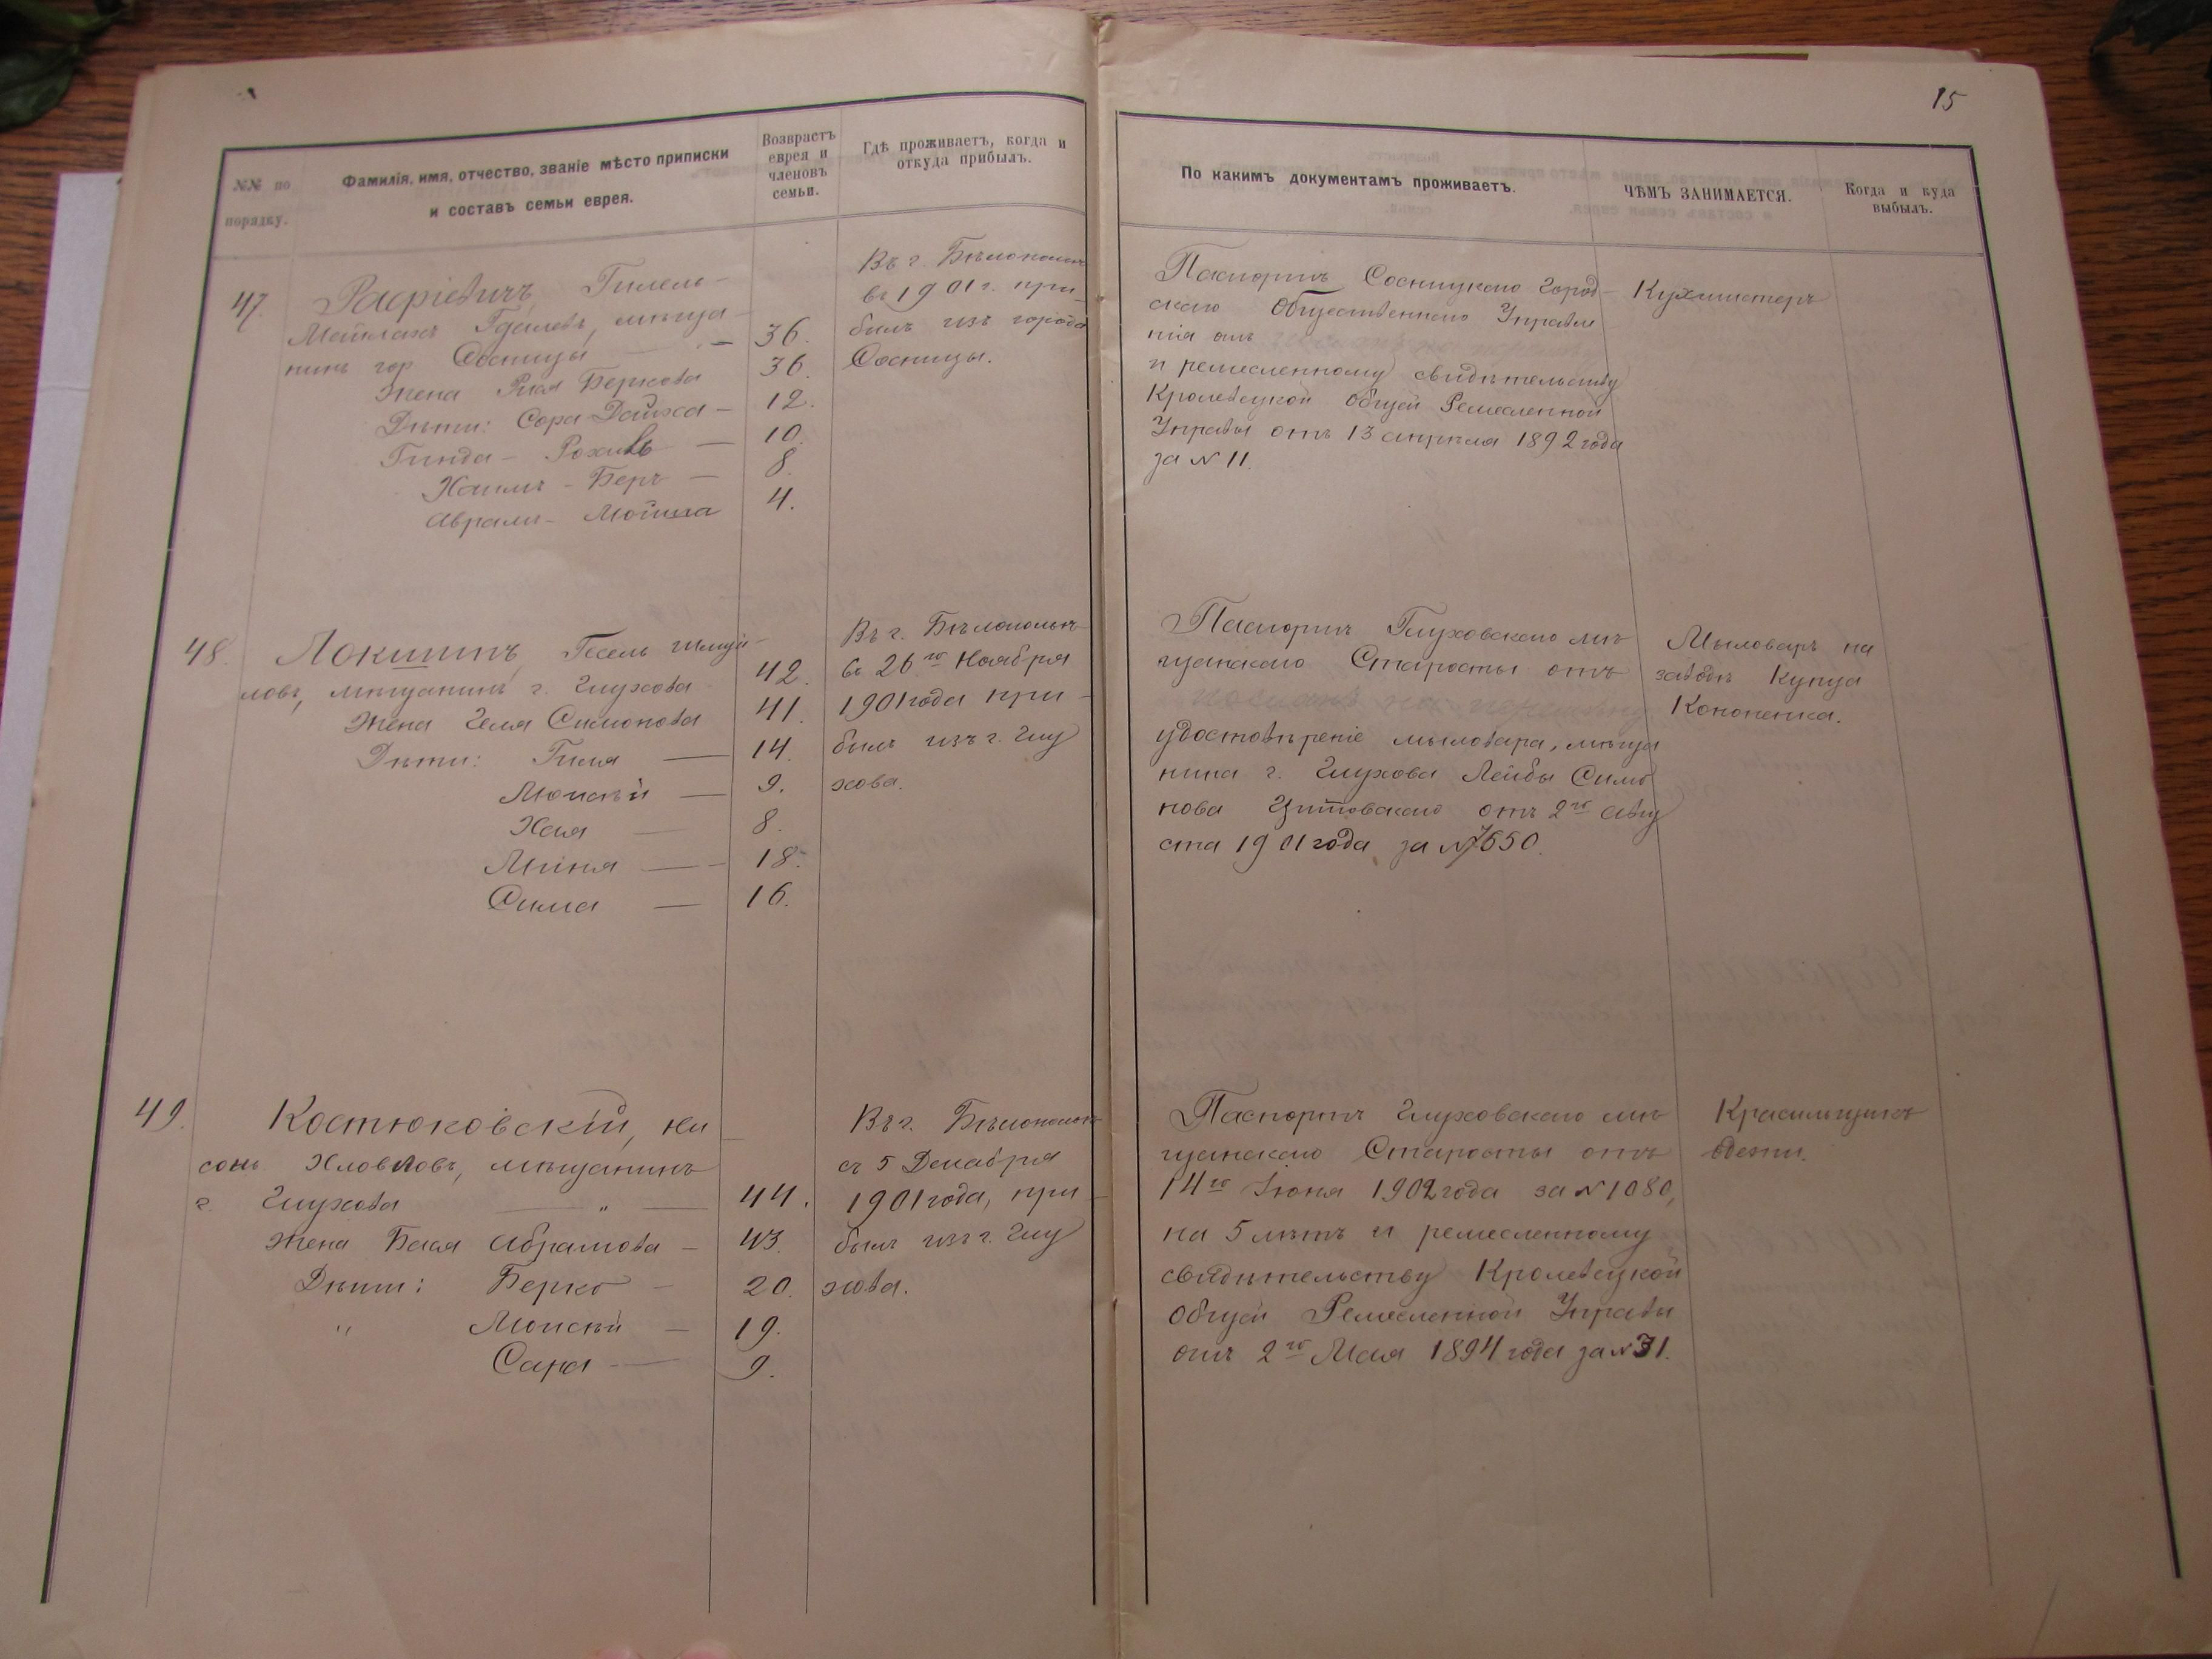 15
№№ по порядку.
Фамилія, имя, отчество, званіе мѣсто приписки
и составъ семьи еврея.
Возврастъ
еврея и
членовъ
семьи.
Гдѣ проживаетъ, когда и
откуда прибылъ.
По какимъ документамъ проживаетъ.
ЧѢМЪ ЗАНИМАЕТСЯ.
Когда и куда
выбылъ.
47. Расріевичъ, Гилель-
Мойлахъ Гдалевъ, мѣща-
нинъ гор Сосницы — 36.
Жена Рися Беркова 36.
Дѣти: Сора-Двойха — 12.
Гинда - — 10.
Хаимъ - Беръ — 8.
Абрамъ - Мойша 4.
Въ г. Бѣлополье
въ 1901 г. при-
былъ изъ города
Сосницы.
Паспортъ Сосницкаго Город-
скаго Общественнаго Управле
нія отъ
и ремесленному свидѣтельству
Кролевецкой Общей Ремесленной
Управы отъ 13 апрѣля 1892 года
за № 11.
Кухмистеръ
48. Локшинъ, Гесель Шмуй-
ловъ, мѣщанинъ г. Глухова 42.
Жена Геля Симонова 41.
Дѣти: Гиля — 14.
Моисѣй — 9.
Хая — 8.
Миня — 18.
Сима — 16.
Въ г. Бѣлополье
въ 26го Ноября
1901 года при-
былъ изъ г. Глу
хова.
Паспортъ Глуховскаго мѣ
щанскаго Старосты отъ
удостовѣреніе мыловара, мѣща
нина г. Глухова Лейбы Симо
нова отъ 2го Авгу
ста 1901 года за № 7650.
Мыловаръ на
заводѣ Купца
Кононенка.
49. Костюковскій, Ни
сонъ мѣщанинъ
г. Глухова — " — 44.
Жена Бася Абрамова — 43.
Дѣти: Берко — 20.
" Моисѣй — 19.
Сара — 9.
Въ г. Бѣлополье
съ 5 Декабря
1901 года, при-
былъ изъ г. Глу
хова.
Паспортъ Глуховскаго мѣ
щанскаго Старосты отъ
14го Іюня 1902 года за № 1080,
на 5 лѣтъ и ремесленному
свидѣтельству Кролевецкой
Общей Ремесленной Управы
отъ 2го Мая 1894 года за № 31.
Красильщикъ
одежи.